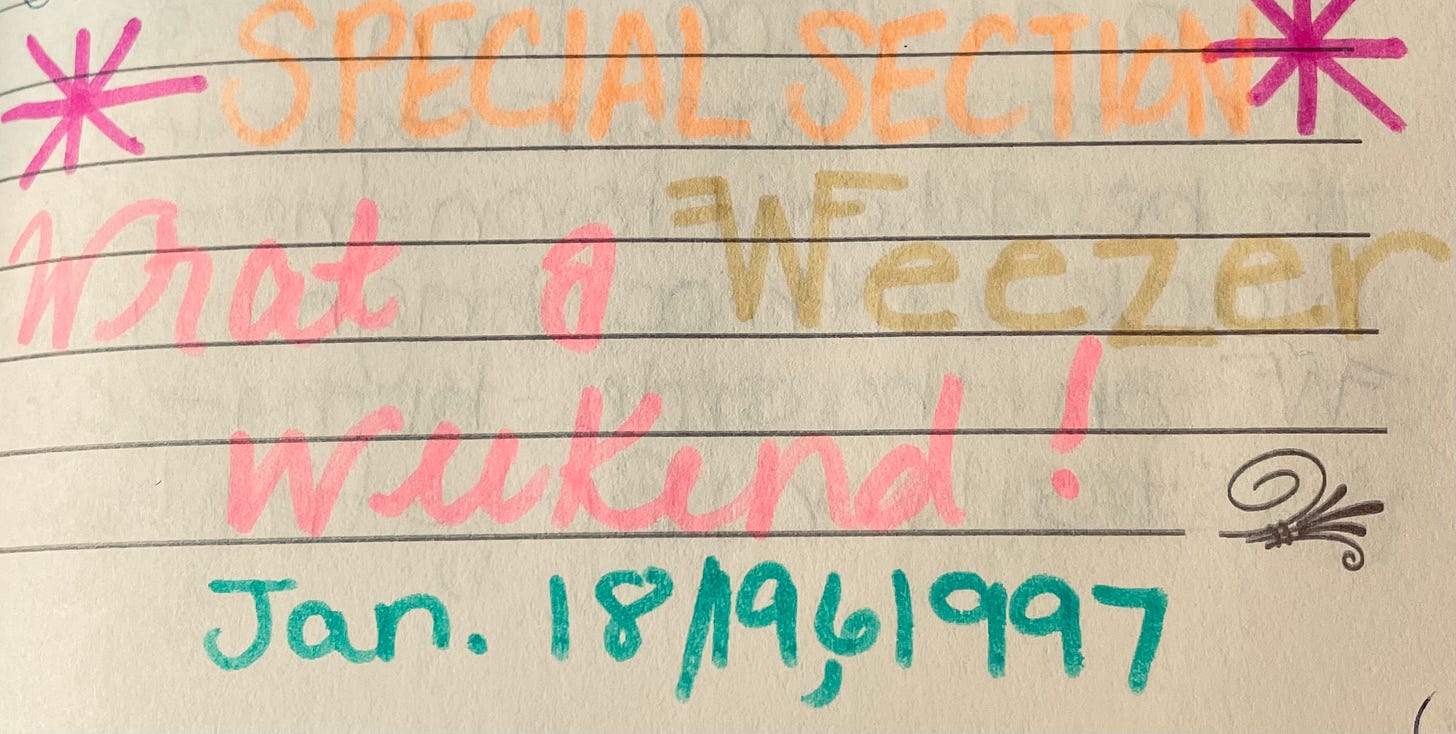 SPECIAL SECTION
What a Weezer
weekend!
Jan. 18/196,1997